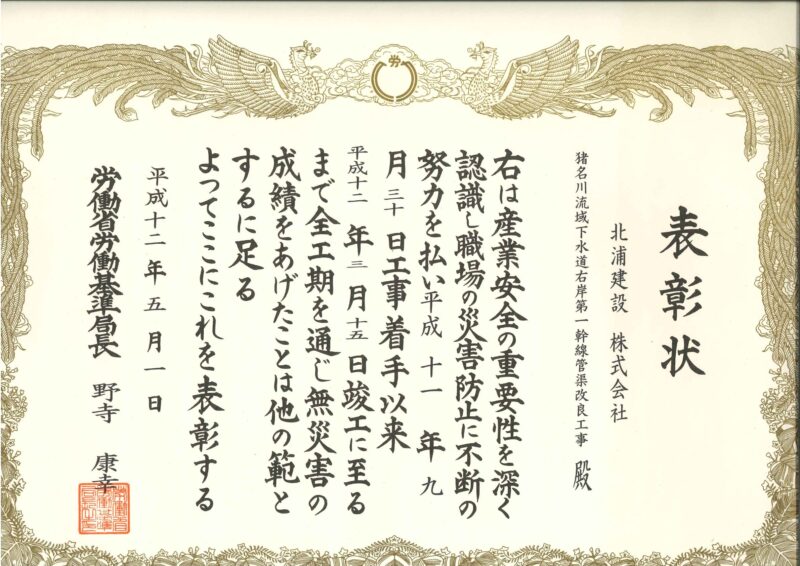 労
表彰状
北浦建設 株式会社
猪名川流域下水道右岸第一幹線管渠改良工事 殿
右は産業安全の重要性を深く
認識し職場の災害防止に不断の
努力を払い平成 十一 年 九
月 三十 日工事着手以来
平成十二 年 三 月 十五 日竣工に至る
まで全工期を通じ無災害の
成績をあげたことは他の範と
するに足る
よってここにこれを表彰する
平成十二年五月一日
労働省労働基準局長 野寺 康幸